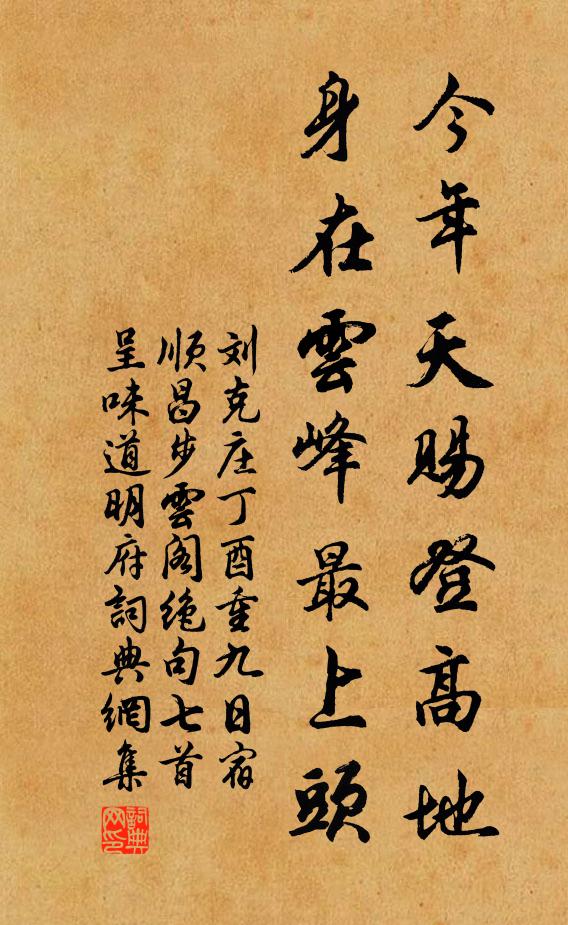 今年天賜登高地
身在雲峰最上頭
刘克庄丁酉重九日宿
順昌步雲阁绝句七首
呈味道明府詞典網集
詞典网印